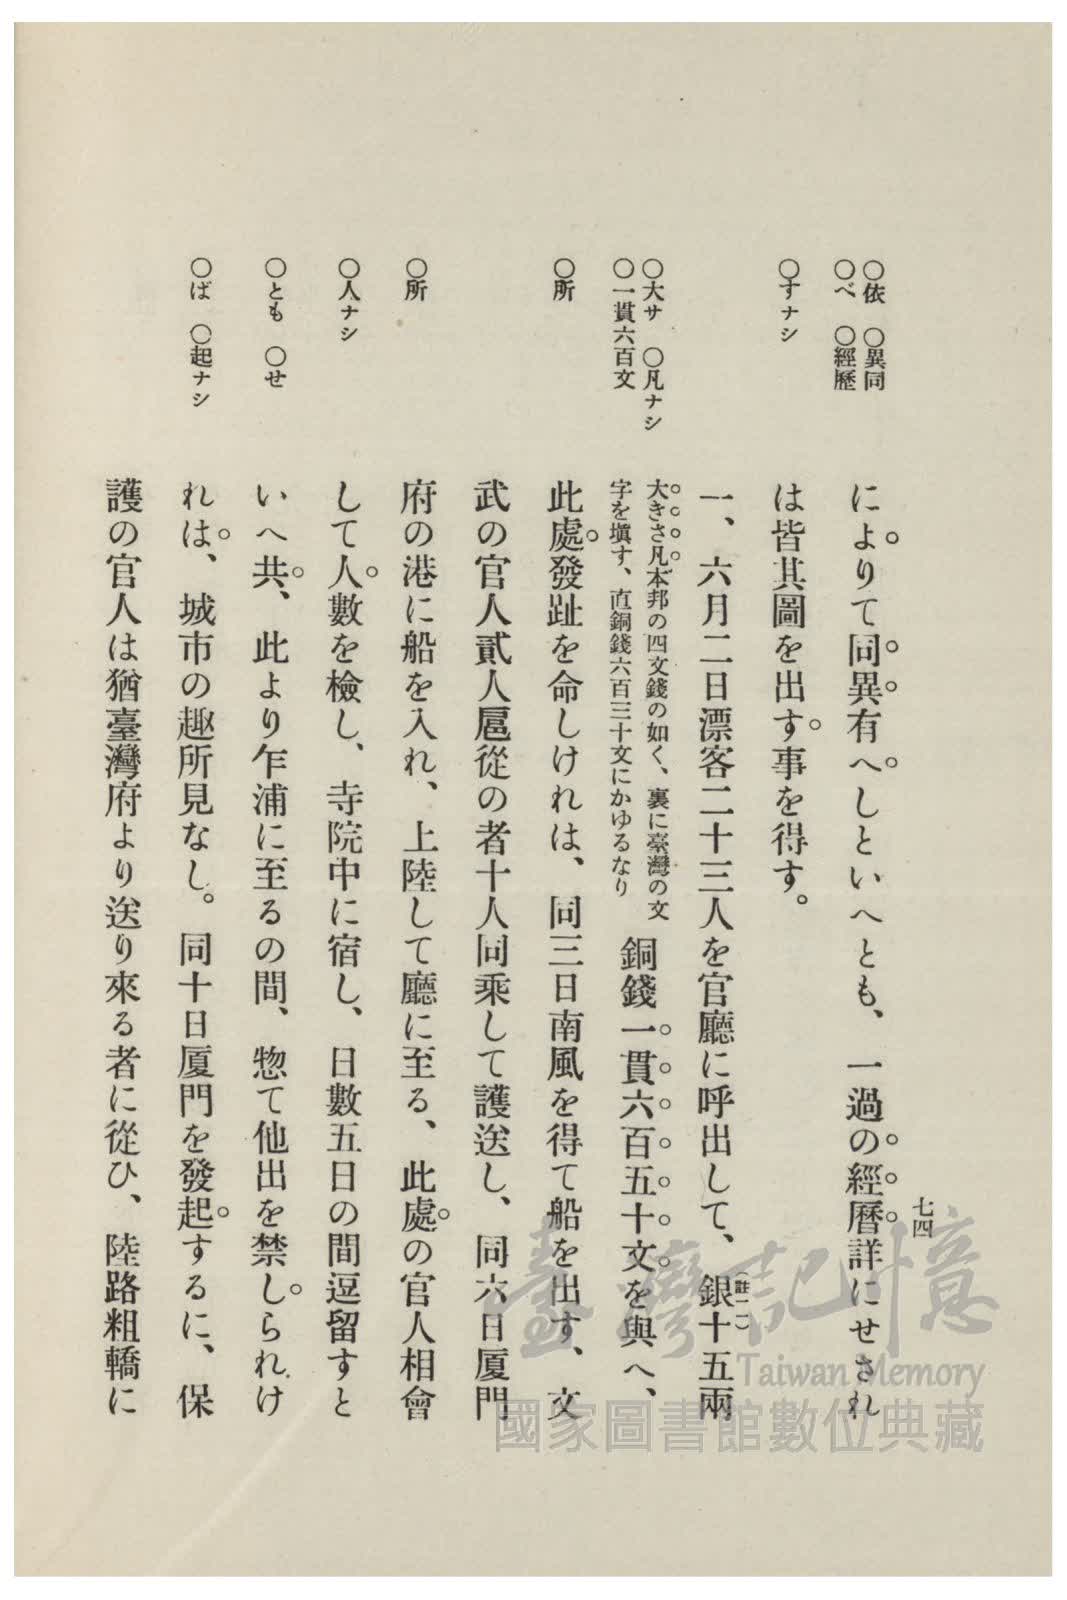 七四
○依　○異同
○べ　○經歷
によりて同異有へしといへとも、一過の經曆詳にせされ
○すナシ
は皆其圖を出す事を得す。
一、六月二日漂客二十三人を官廳に呼出して、銀十五兩
（註一一）
○大サ　○凡ナシ
○一貫六百文
大きさ凡本邦の四文錢の如く、裏に臺灣の文
字を塡す、直銅錢六百三十文にかゆるなり
銅錢一貫六百五十文を與へ、
○所
此處發趾を命しけれは、同三日南風を得て船を出す、文
武の官人貳人扈從の者十人同乘して護送し、同六日厦門
○所
府の港に船を入れ、上陸して廳に至る、此處の官人相會
○人ナシ
して人數を檢し、寺院中に宿し、日數五日の間逗留すと
○とも　○せ
いへ共、此より乍浦に至るの間、惣て他出を禁しられけ
○ば　○起ナシ
れは、城市の趣所見なし。同十日厦門を發起するに、保
護の官人は猶臺灣府より送り來る者に從ひ、陸路粗轎に
臺灣記憶
Taiwan Memory
國家圖書館數位典藏